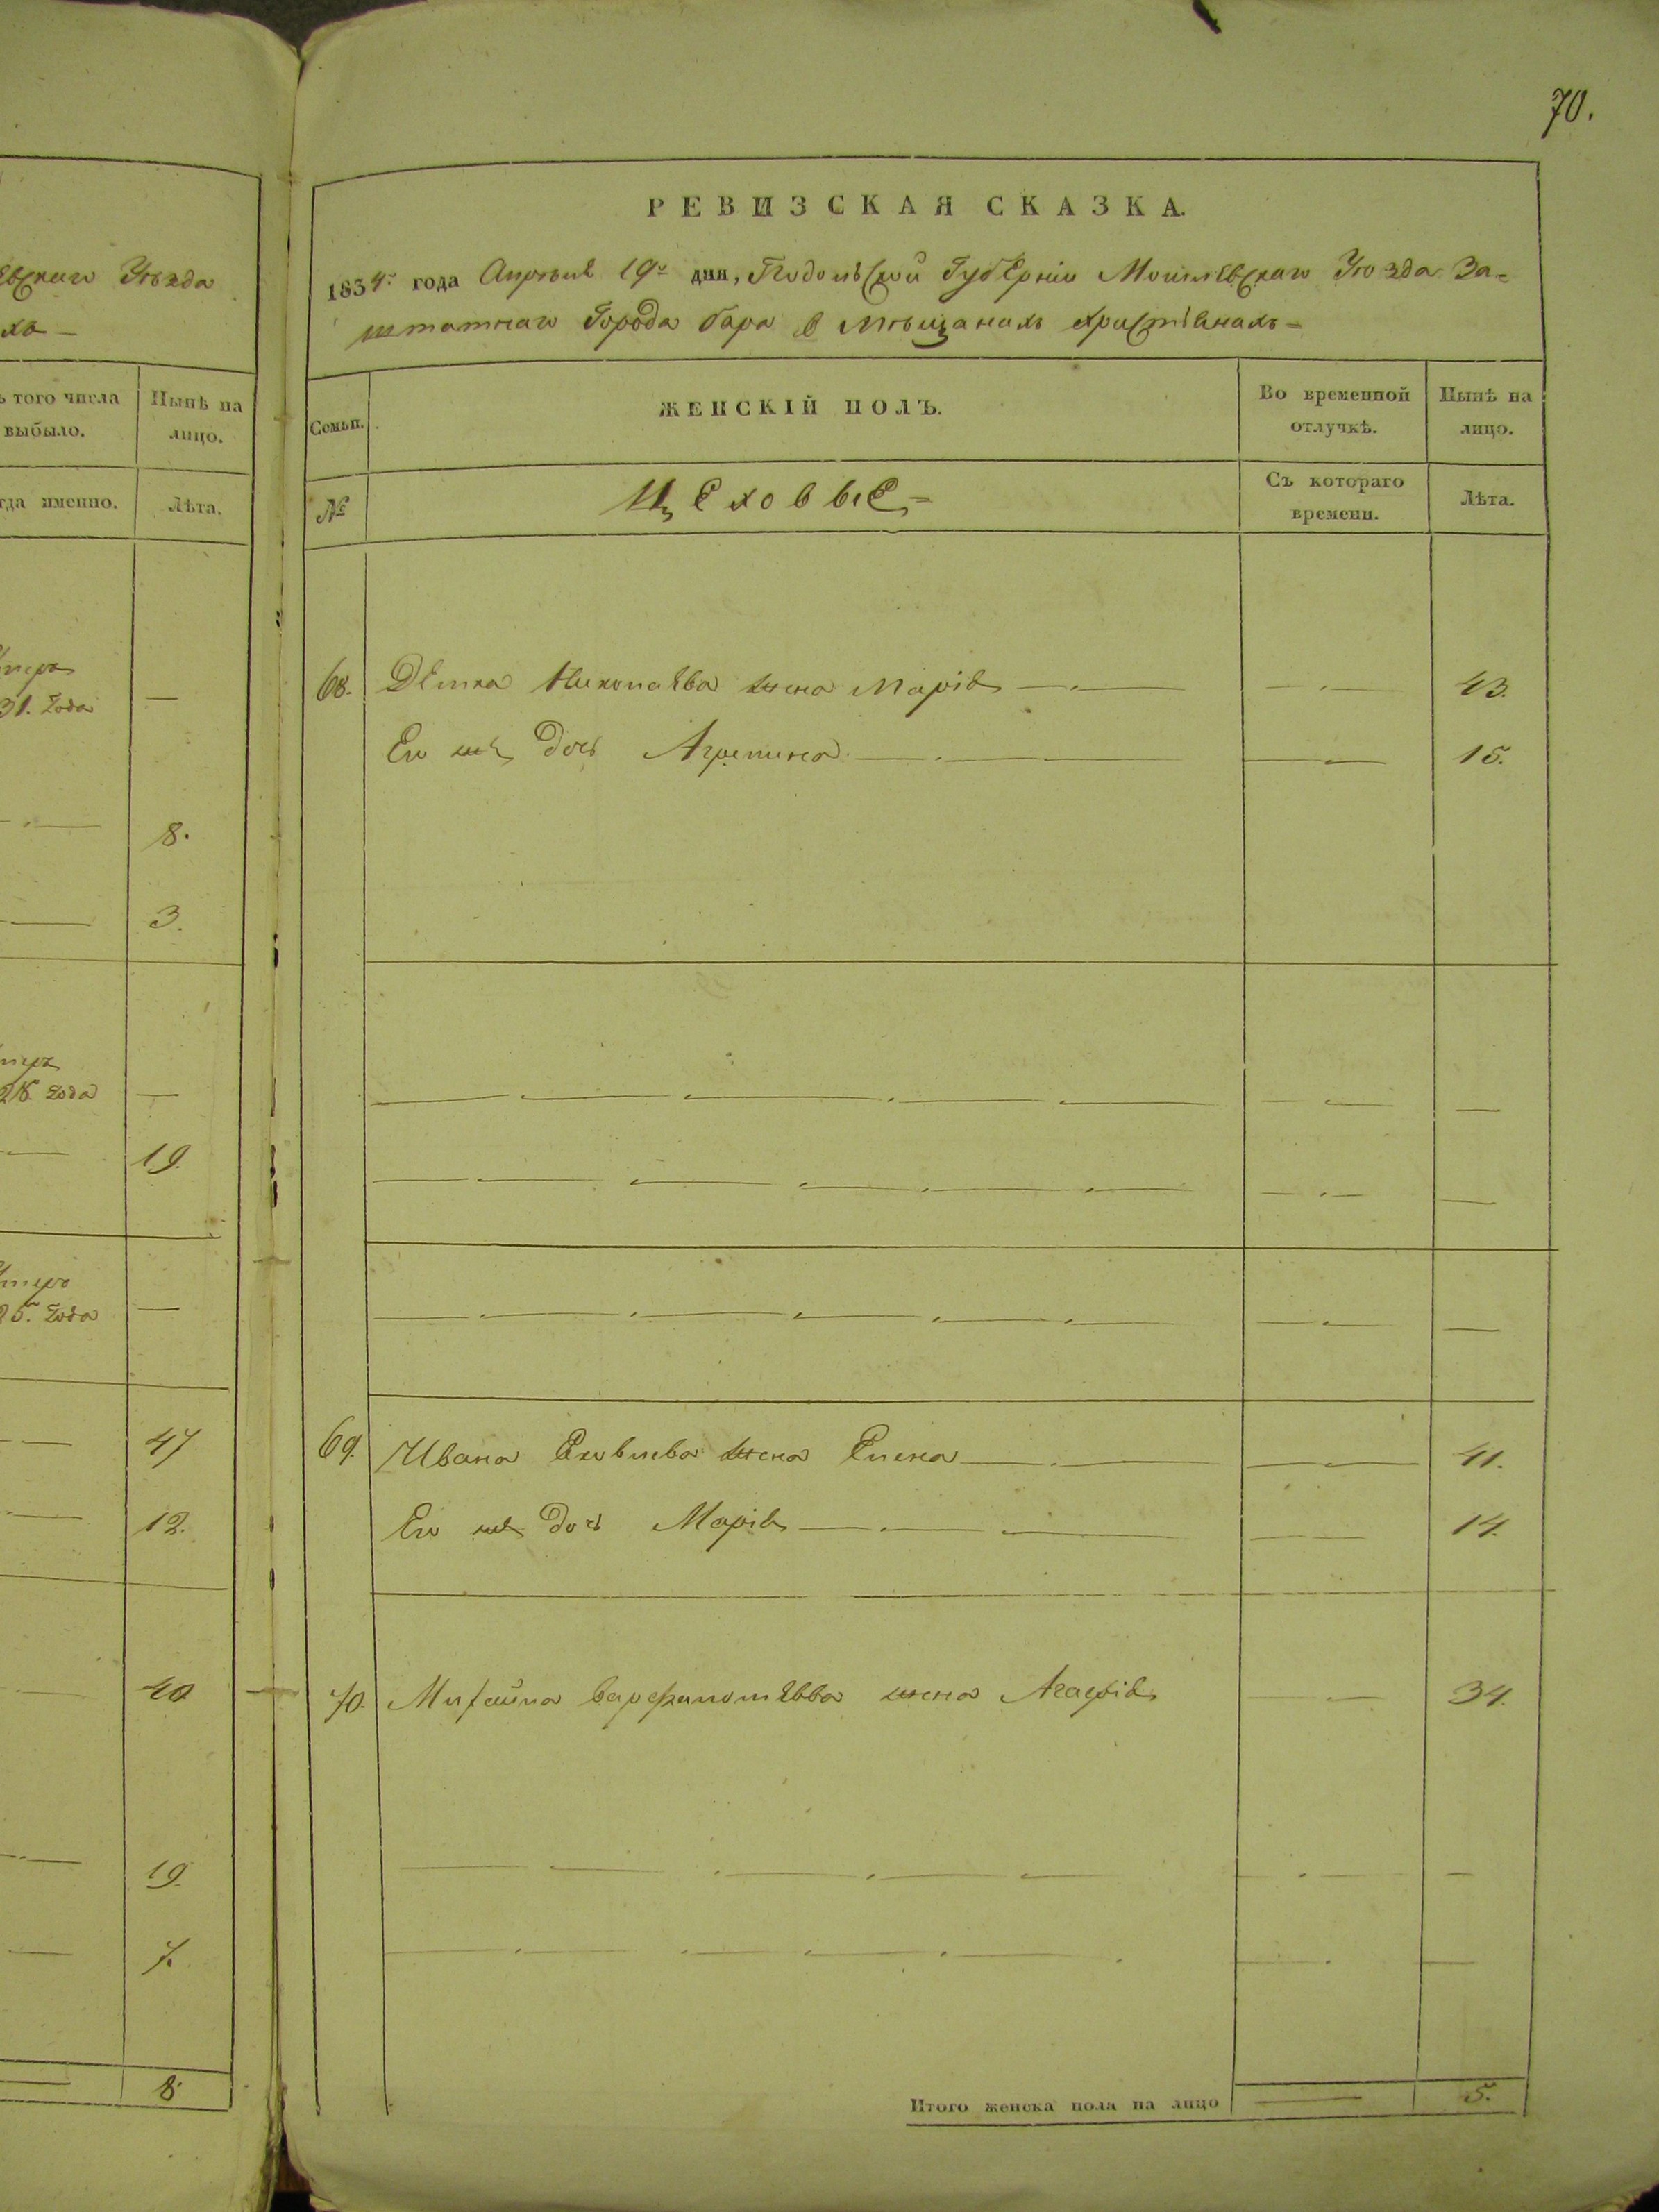 70.
РЕВИЗСКАЯ СКАЗКА.
1834. года Апреля 19го дня, Подольской Губерніи Могилевскаго Уезда За=
штатнаго Города Бара о Мещанахъ христіянахъ=
евскаго Уезда
хъ—
ъ того числа выбыло.
Нынѣ на лицо.
гда именно.
Лѣта.
Семьи.
ЖЕНСКІЙ ПОЛЪ.
Во временной отлучкѣ.
Нынѣ на лицо.
№
Цеховые=
Съ котораго времени.
Лѣта.
31. года
8.
3.
года
19.
25. года
47
12.
40
19.
7.
8
68. Николаева жена Марія 43.
Его же дочь Агрепина 15.
69. Ивана жена Елена 41.
Его же дочь Марія 14.
70. Михайла жена Агафія 34.
Итого женска пола на лицо 5.